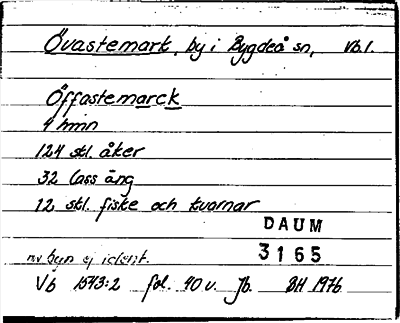 Övastemark, by i Bygdeå sn, Vb l.
Öffastemarck
4 hmn
124 skl. åker
32 lass äng
12 skl. fiske och kvarnar
DAUM
3165
nv byn ej ident.
Vb 1543:2 fol. 40 v. Jb. BH 1976